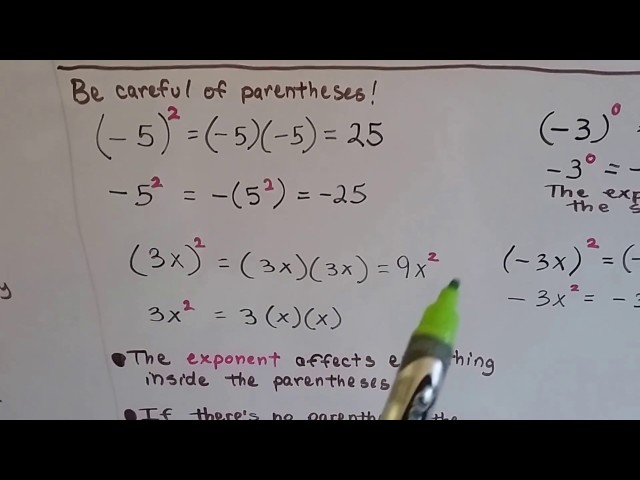 Be careful of parentheses!
(-5)² = (-5)(-5) = 25
-5² = -(5²) = -25
(3x)² = (3x)(3x) = 9x²
3x² = 3(x)(x)
The exponent affects
inside the parentheses
If there's no the
(-3)⁰
-3⁰ = -
The
the
(-3x)² = (-
-3x² = -3
y